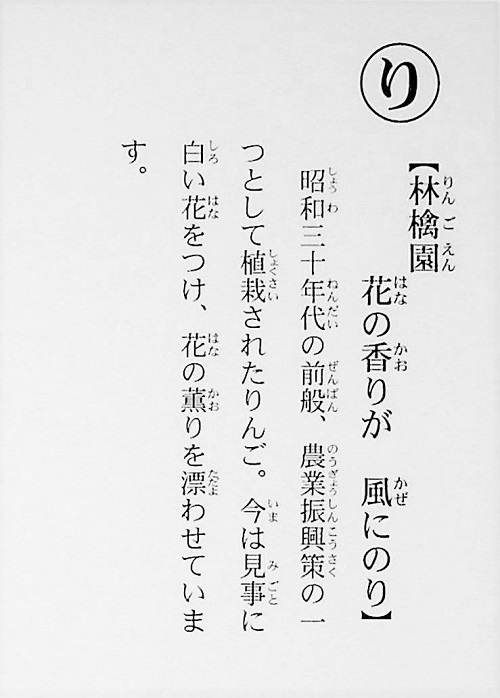 り
【林檎園
花の香りが　風にのり】
昭和三十年代の前般、農業振興策の一
つとして植栽されたりんご。今は見事に
白い花をつけ、花の薫りを漂わせていま
す。